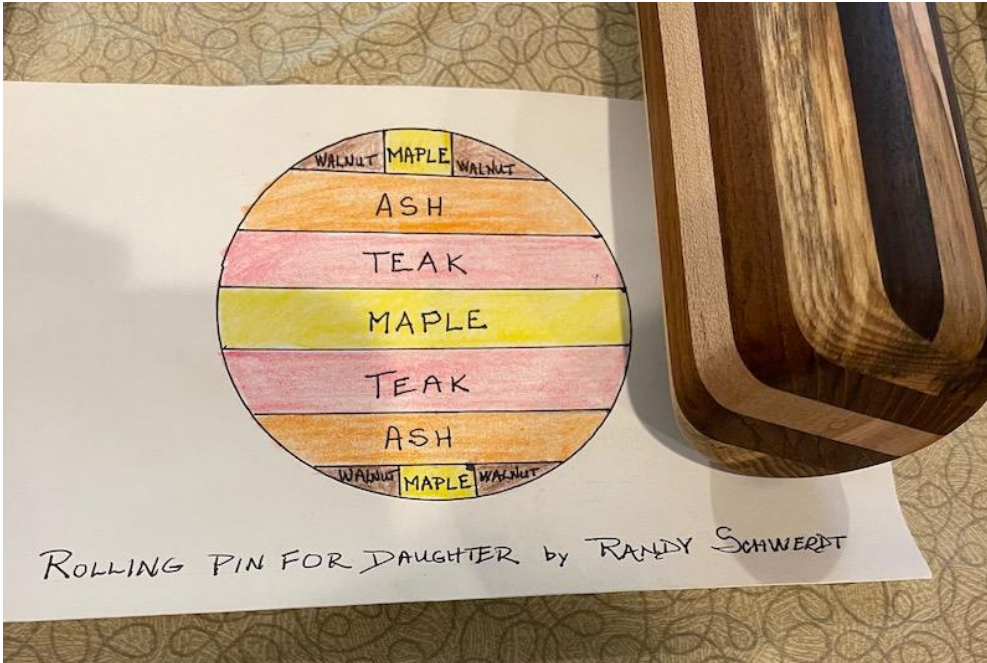 WALNUT MAPLE WALNUT
ASH
TEAK
MAPLE
TEAK
ASH
WALNUT MAPLE WALNUT
ROLLING PIN FOR DAUGHTER by RANDY SCHWERDT